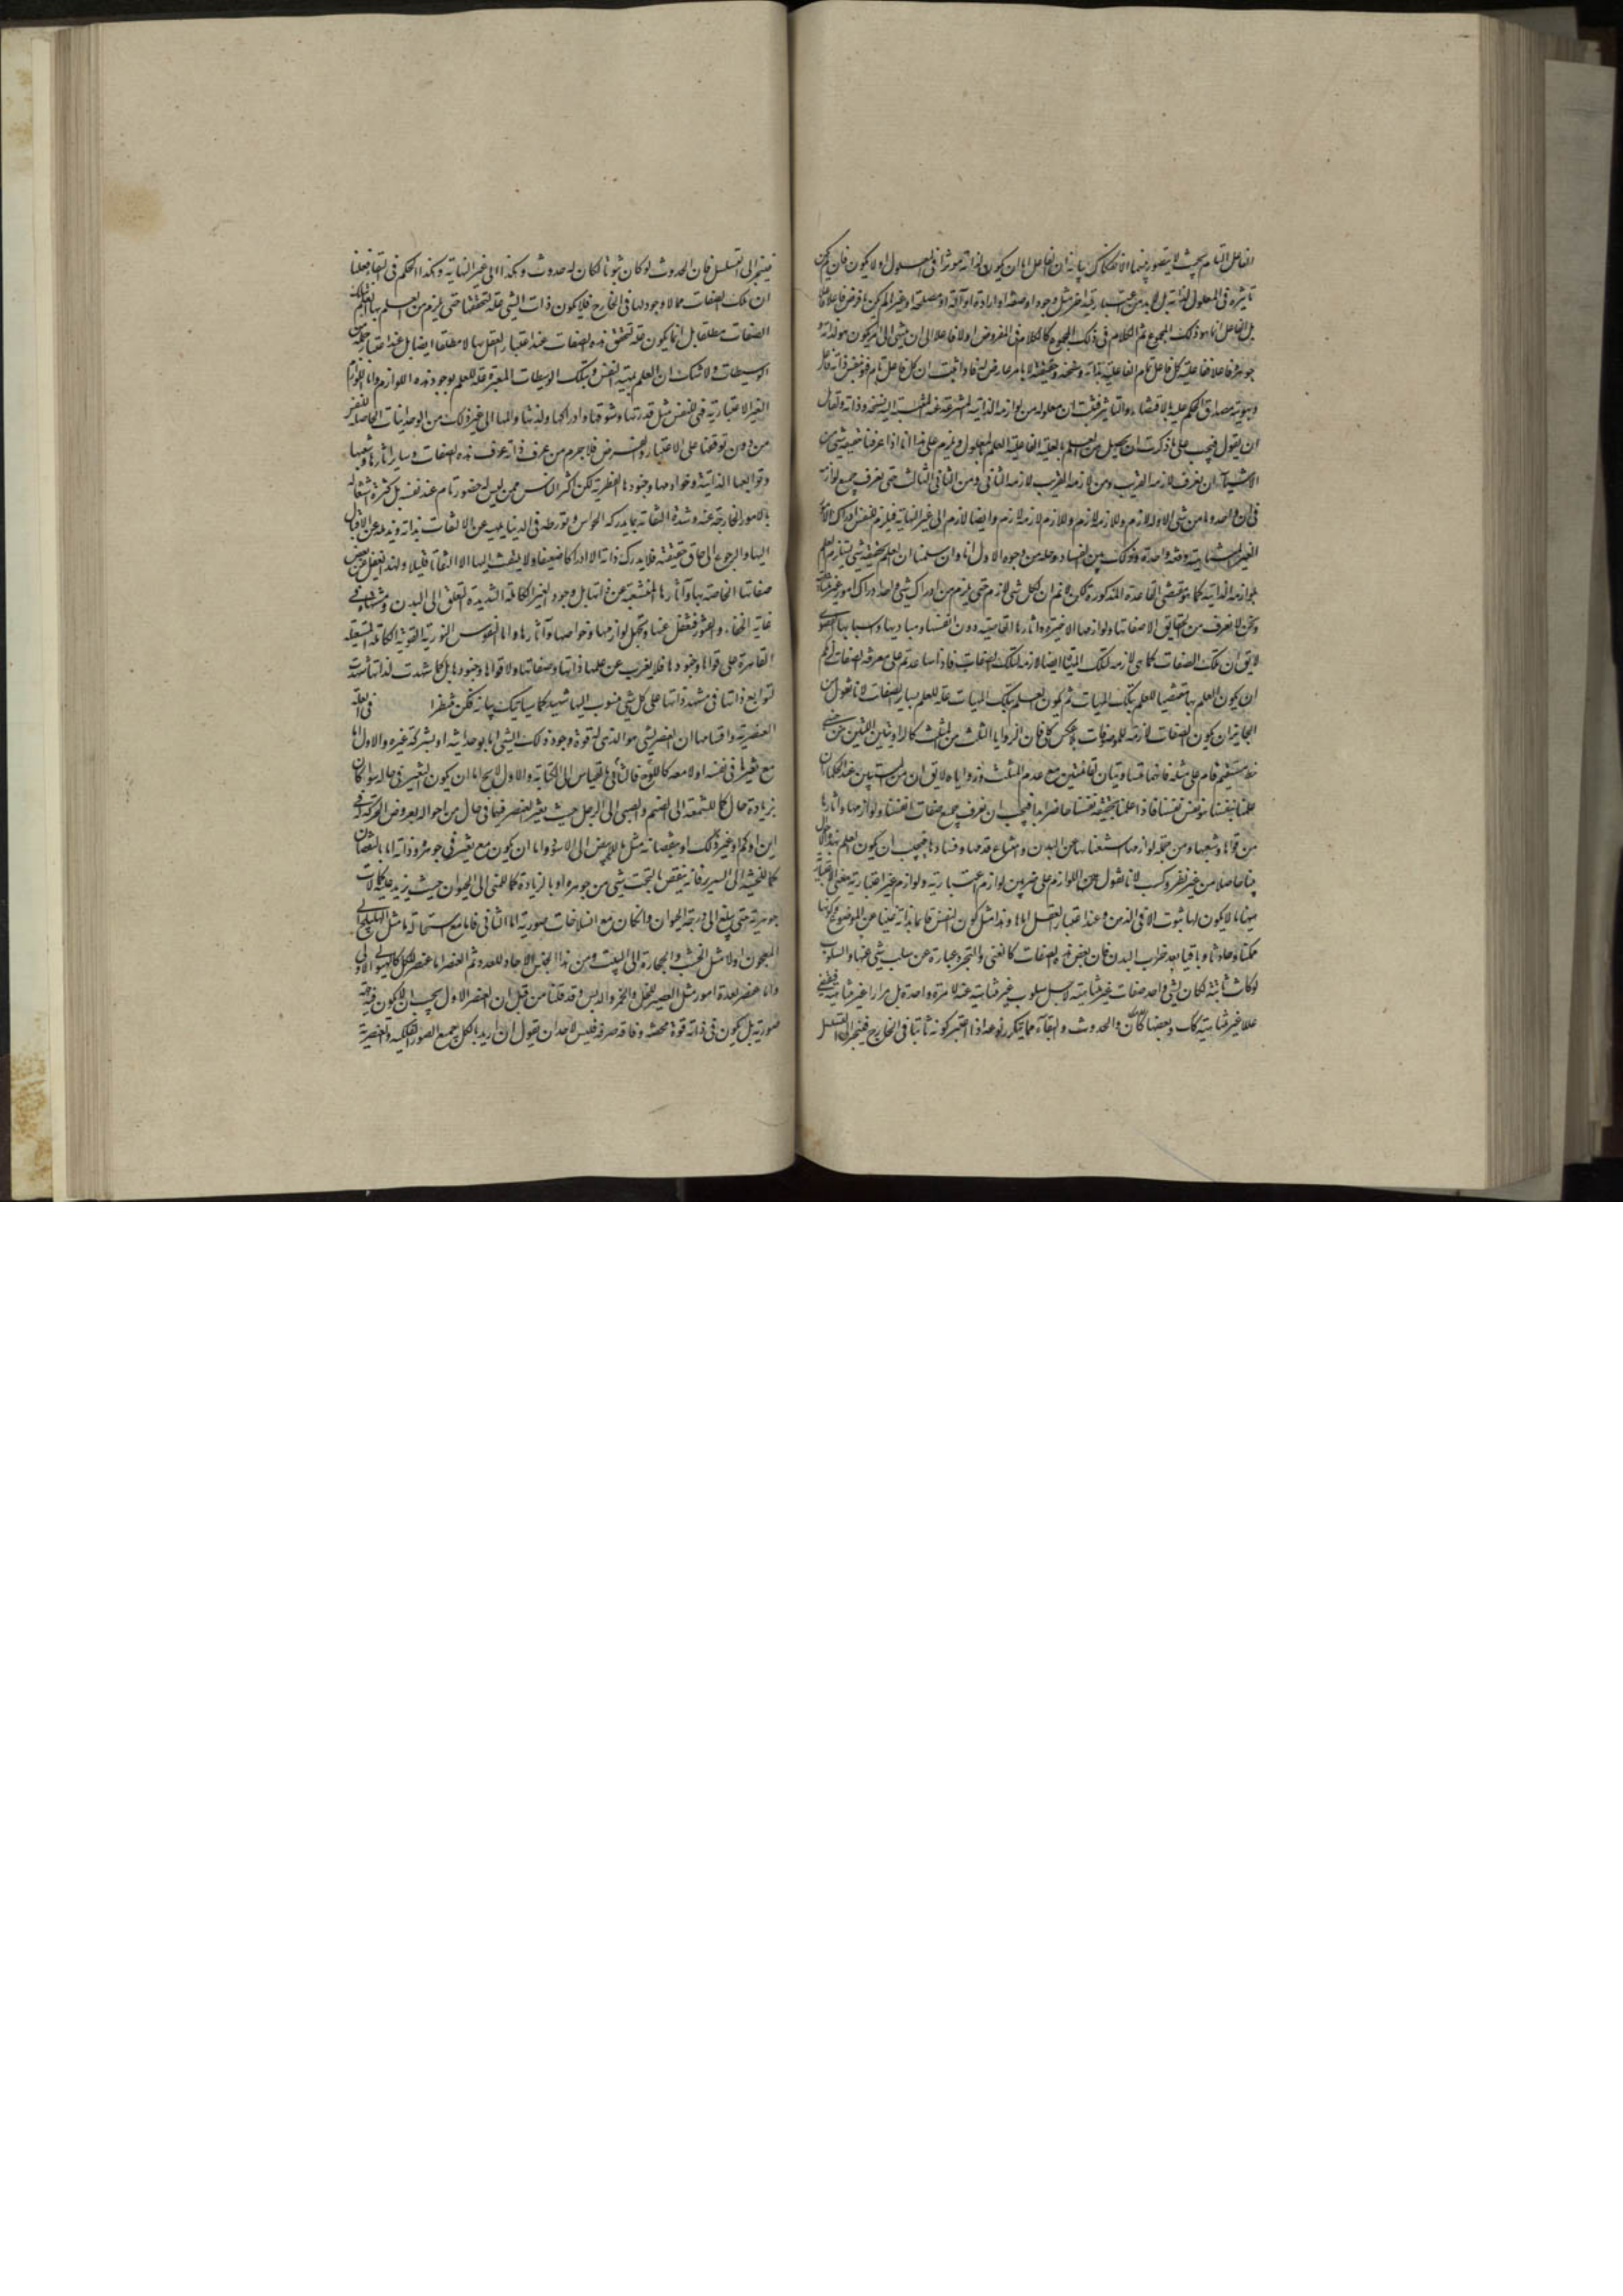 الفاعل التام بحيث لا يتصور بينهما الانفكاك بيانه ان الفاعل اما ان يكون لذاته مؤثرا في المعلول او لا يكون فان لم يكن
تاثيره في المعلول لذاته بل لا بد من اعتبار قيد اخر مثل وجود او صفة او ارادة او آلة او مصلحة او غيرها لم يكن ما فرض فاعلا فاعلا
بل الفاعل انما هو ذلك المجموع ثم الكلام في ذلك المجموع كالكلام في المفروض اولا فاعلا الى ان ينتهي الى امر يكون هو لذاته و
جوهره فاعلا ففاعلية كل فاعل تام الفاعلية بذاته وسنخه وحقيقته لا بامر عارض له فاذا ثبت ان كل فاعل تام فهو بنفس ذاته فاعل
وبهويته مصداق للحكم عليه بالاقتضاء والتاثير فثبت ان معلوله من لوازمه الذاتية المنتزعة عنه المنتسبة اليه بسنخه وذاته ولقائل
ان يقول فيجب على ما ذكرت ان يحصل من العلم بالعلة الفاعلية العلم بالمعلول ويلزم على هذا انا اذا عرفنا حقيقة شيء من
الاشياء ان نعرف لازمه القريب ومن لازمه القريب لازمه الثاني ومن الثاني الثالث حتى نعرف جميع لوازمه
في آن واحد وما من شيء الا وله لازم وللازمه لازم وللازم لازمه لازم وايضا لازم الى غير النهاية فيلزم للنفس ادراك الامور
الغير المتناهية دفعة واحدة وذلك بين الفساد وحله من وجوه الاول انا وان سلمنا ان العلم بحقيقة شيء يستلزم العلم
بلوازمه الذاتية كما هو مقتضى القاعدة المذكورة لكن لا نم ان لكل شيء لازم حتى يلزم من ادراك شيء واحد ادراك امور غير متناهية
ونحن لا نعرف من الحقايق الا صفاتها ولوازمها الاخيرة واثارها القاصية دون انفسها ومباديها واسبابها القصوى
لا يق ان تلك الصفات كما هي لازمة لتلك الهيئات ايضا لازمة لتلك الصفات فاذا ساعدتم على معرفة الصفات لزمكم
ان يكون العلم بها مقتضيا للعلم بتلك الهيات ثم يكون العلم بتلك الهيات علة للعلم بساير الصفات لانا نقول من
الجايز ان يكون الصفات لازمة للموصوفات بلا عكس كلي فان الزوايا الثلث من المثلث كالزاويتين اللتين عن جنبتي
خط مستقيم قام على مثله فانهما متساويتان لقائمتين مع عدم المثلث وزواياه لا يق ان من المستبين عند الحكماء ان
علمنا بنفسنا هو نفس نفسنا فاذا علمنا بحقيقة نفسنا حاضر ابدا فيجب ان نعرف جميع صفات انفسنا ولوازمها واثارها
من قواها وشعبها ومن جملة لوازمها استغناؤها عن البدن وامتناع عدمها وفسادها فيجب ان يكون العلم بهذه الاحوال
بينا حاصلا من غير نظر وكسب لانا نقول من اللوازم على ضربين لوازم اعتبارية ولوازم غير اعتبارية معنى الاعتبارية
هيهنا ما لا يكون لها ثبوت الا في الذهن وعند اعتبار العقل اياها وهذا مثل كون النفس قائما بذاته غنيا عن الموضوع وكونها
ممكنا وحادثا وباقيا بعد خراب البدن فان بعض هذه الصفات كالغنى والتجرد عبارة عن سلب شيء عنها والسلوب
لو كانت ثابتة لكان لشيء واحد صفات غير متناهية لاجل سلوب غير متناهية عنه لا مرة واحدة بل مرارا غير متناهية فيقتضي
عللا غير متناهية كك وبعضها كالامكان والحدوث والبقاء مما يتكرر نوعه اذا اعتبر كونه ثابتا في الخارج فينجر الى التسلسل
فينجر الى التسلسل فان الحدوث لو كان ثبوتا لكان له حدوث وهكذا الى غير النهاية وهكذا الحكم في البقاء فعلمنا
ان تلك الصفات مما لا وجود لها في الخارج فلا يكون ذات الشيء علة لتحققها حتى يلزم من العلم بها العلم بتلك
الصفات مطلقا بل انما يكون علة لتحقق هذه الصفات عند اعتبار العقل بها لا مطلقا ايضا بل عند اعتبار جملة من
الوسيطات ولا شك ان العلم بمهية النفس وبتلك الوسيطات المعتبرة علة للعلم بوجود هذه اللوازم واما اللوازم
الغير الاعتبارية فهي للنفس مثل قدرتها وشوقها وادراكها ولذتها والمها الى غير ذلك من الوجدانيات الحاصلة للنفس
من دون توقفها على الاعتبار والفرض فلا جرم من عرف ذاته عرف هذه الصفات وساير اثارها وشعبها
وتوابعها الذاتية وخوادمها وجنودها الفطرية لكن اكثر الناس ممن ليس له حضور تام عند نفسه بل كثرة اشتغاله
بالامور الخارجة عنه وشدة التفاته بما يدركه الحواس وتورطه في الدنيا يلهيه عن الالتفات بذاته ويذهله عن الاقبال
اليها والرجوع الى حاق حقيقته فلا يدرك ذاته الا ادراكا ضعيفا ولا يلتفت اليها الا التفاتا قليلا ولهذا يغفل عن بعض
صفاتها الخاصة بها وآثارها المنشعبة عن ذاتها بل وجود النفس الكاملة الشديدة التعلق الى البدن ومشتهياته في
غاية الخفاء والقصور فتغفل عنها وتجهل لوازمها وخواصها وآثارها واما النفوس النورية القوية الكاملة المستعلية
القاهرة على قواها وجنودها فلا يعزب عن علمها ذاتها وصفاتها ولا قواها وجنودها بل كلما شهدت لذاتها شهدت
لتوابع ذاتها في مشهد ذاتها على كل شيء منسوب اليها شهيد كما سياتيك بيانه فكن منتظرا في العلة
العنصرية واقسامها ان العنصر لشيء هو الذي له قوة وجود ذلك الشيء اما بوحدانيته او بشركة غيره والاول اما
مع تغير ما في نفسه او لا معه كاللوح بالقياس الى الكتابة والاول لا يخ اما ان يكون التغير في حاله سواء كان
بزيادة حال كما للشمعة الى الصنم والصبي الى الرجل حيث يتغير العنصر فيهما في حال من احواله بعروض الحركة له في
اين او كم او غير ذلك او بنقصانه مثل ما للابيض الى الاسود واما ان يكون مع تغير في جوهره وذاته اما بالنقصان
كما للخشبة الى السرير فانه ينقص بالنحت شيء من جوهره او بالزيادة كما للمني الى الحيوان حيث يزيد عليه كمالات
جوهرية حتى يبلغ الى درجة الحيوان وان كان مع انسلاخات صورية اما الثاني فاما مع استحالة ما مثل الهليلج الى
المعجون او لا مثل الخشب والحجارة الى البيت ومن هذا الجنس الاحاد للعدد ثم العنصر اما عنصر للكل كالهيولى الاولى
واما عنصر لعدة امور مثل العصير للخل والخمر والدبس وقد قلنا من قبل ان العنصر الاول يجب ان لا يكون فيه جهة
صورية بل يكون في ذاته قوة محضة وفاقة صرفة فليس لاحد ان يقول ان اريد بالكل جميع الصور الفلكية والعنصرية